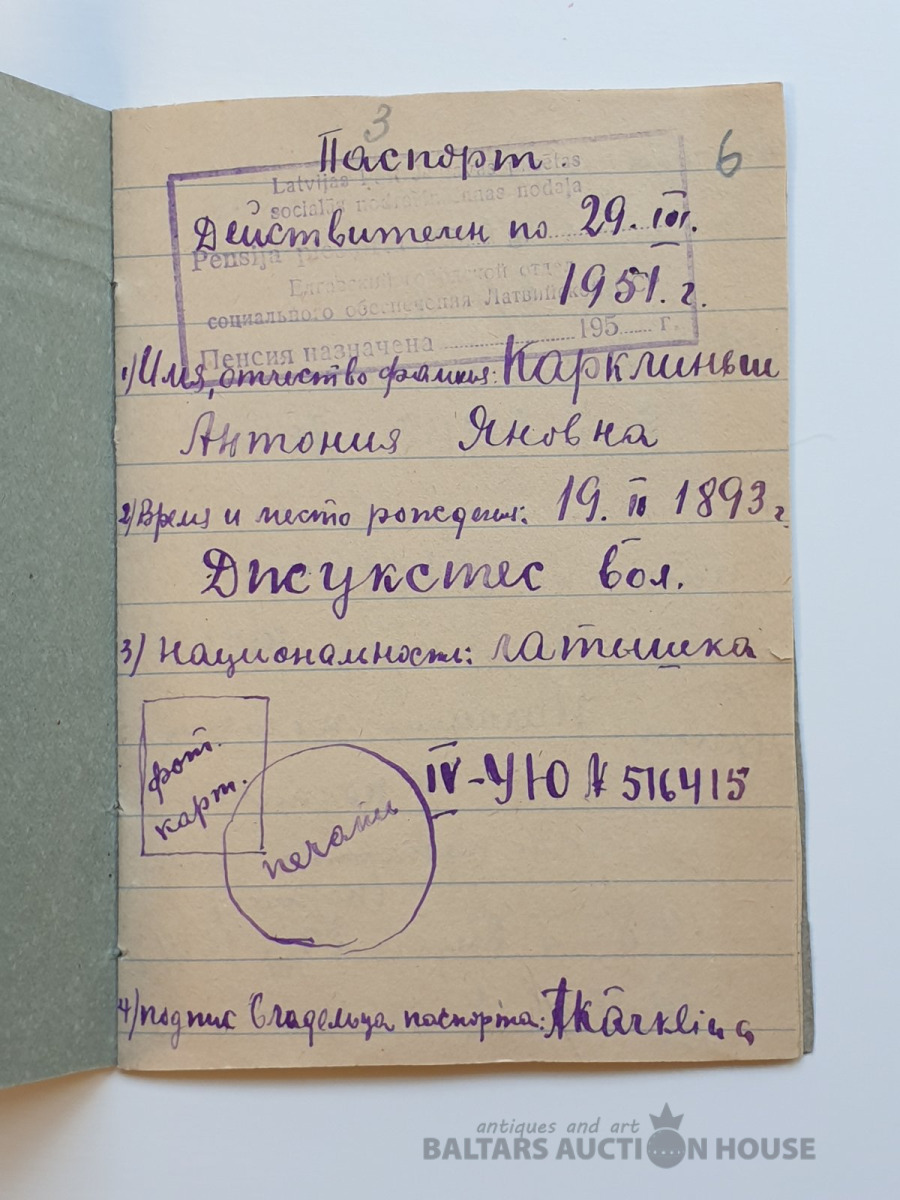 3
6
Паспорт.
Latvijas
sociālās nodrošināšanas nodaļa
Действителен по 29. III.
Pensija
1951. г.
социального обеспечения
Пенсия назначена 195 г.
1) Имя, отчество фамилия: Карклиньш
Антония Яновна
2) Время и место рождения: 19. II 1893 г
Джукстес вол.
3) Национальность: латышка
фот.
карт.
печать
IV-УЮ № 516415
4) подпис владельца паспорта: AKārkliņa
antiques and art
BALTARS AUCTION HOUSE